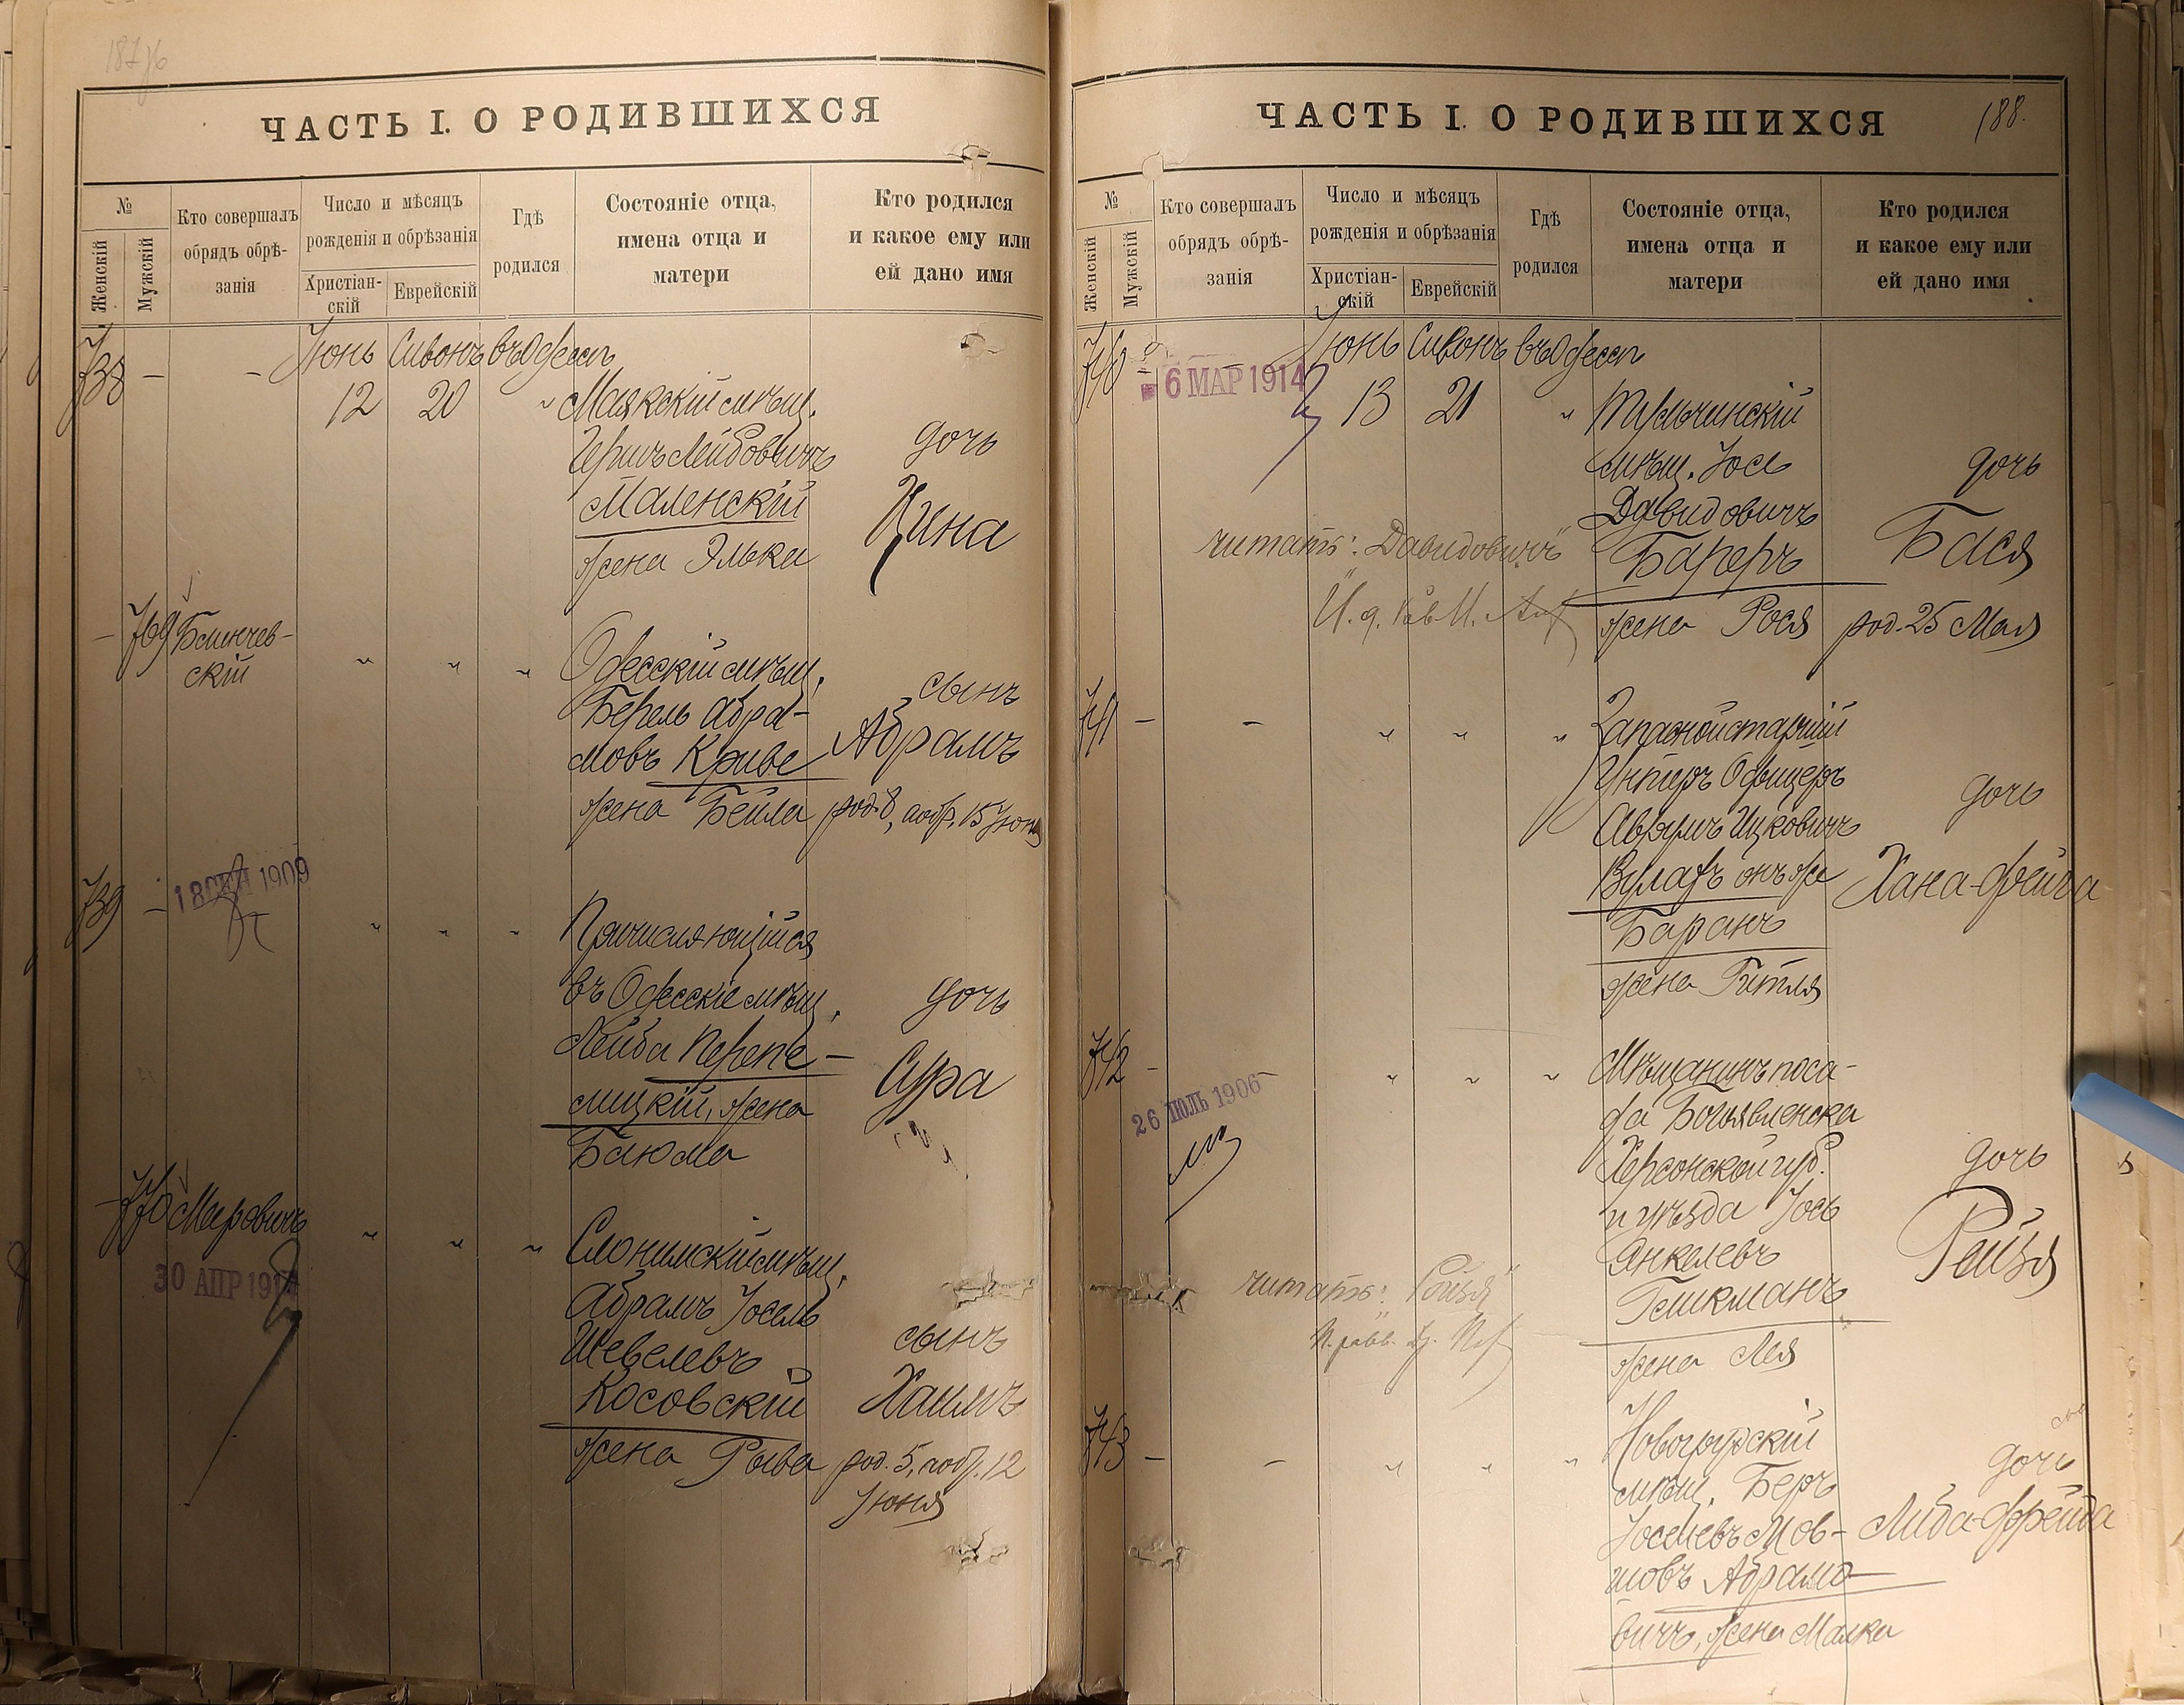 ЧАСТЬ I. О РОДИВШИХСЯ
№
Женскій
Мужскій
Кто совершалъ
обрядъ обрѣ-
занія
Число и мѣсяцъ
рожденія и обрѣзанія
Христіан-
скій
Еврейскій
Гдѣ
родился
Состояніе отца,
имена отца и
матери
Кто родился
и какое ему или
ей дано имя
738 — - Іюнь Сивонъ въ Одессѣ
12 20 " Маякскій мѣщ.
Гершъ Лейбовичъ
Маленскій
жена Элька
дочь
Цина
— 769 Блинчев-
скій
" " " Одесскій мѣщ.
Берель Абра-
мовъ Криве
жена Бейла
сынъ
Абрамъ
род. 8, а обр. 15 Іюня
739 —
1909
" " " Причисляющійся
въ Одесскіе мѣщ.
Лейба Перепе-
лицкій, жена
Баюма
дочь
Сура
— 770 Меровичъ
30 АПР
" " " Слонимскій мѣщ.
Абрамъ Іосель
Шевелевъ
Косовскій
жена Рыва
сынъ
Хаимъ
род. 5, а обр. 12
Іюня
ЧАСТЬ I. О РОДИВШИХСЯ
188.
№
Женскій
Мужскій
Кто совершалъ
обрядъ обрѣ-
занія
Число и мѣсяцъ
рожденія и обрѣзанія
Христіан-
скій
Еврейскій
Гдѣ
родился
Состояніе отца,
имена отца и
матери
Кто родился
и какое ему или
ей дано имя
740 Іюнь Сивонъ въ Одессѣ
6 МАР 1914
13 21 "
мѣщ. Іось
Давидовичъ
читать: "Давидовичъ"
жена Рося
дочь
Бася
род. 25 Мая
741 — - " " " Запасной старшій
Унтеръ Офицеръ
Авѳумъ Ицковичъ
Вулафъ онъ же
Баранъ
жена Гитля
дочь
Хана-Фейга
742 - " " " Мѣщанинъ поса-
да Богоявленска
Херсонской губ.
и уѣзда Іось
Янкелевъ
Гликманъ
жена Лея
26 ІЮЛЬ 1906
читать: "Ройзя"
дочь
Рейзя
743 — - " " " Новогрудскій
мѣщ. Беръ
Іоселевъ Мов-
шовъ Абрамо-
вичъ, жена Малка
дочь
Либа-Фрейда